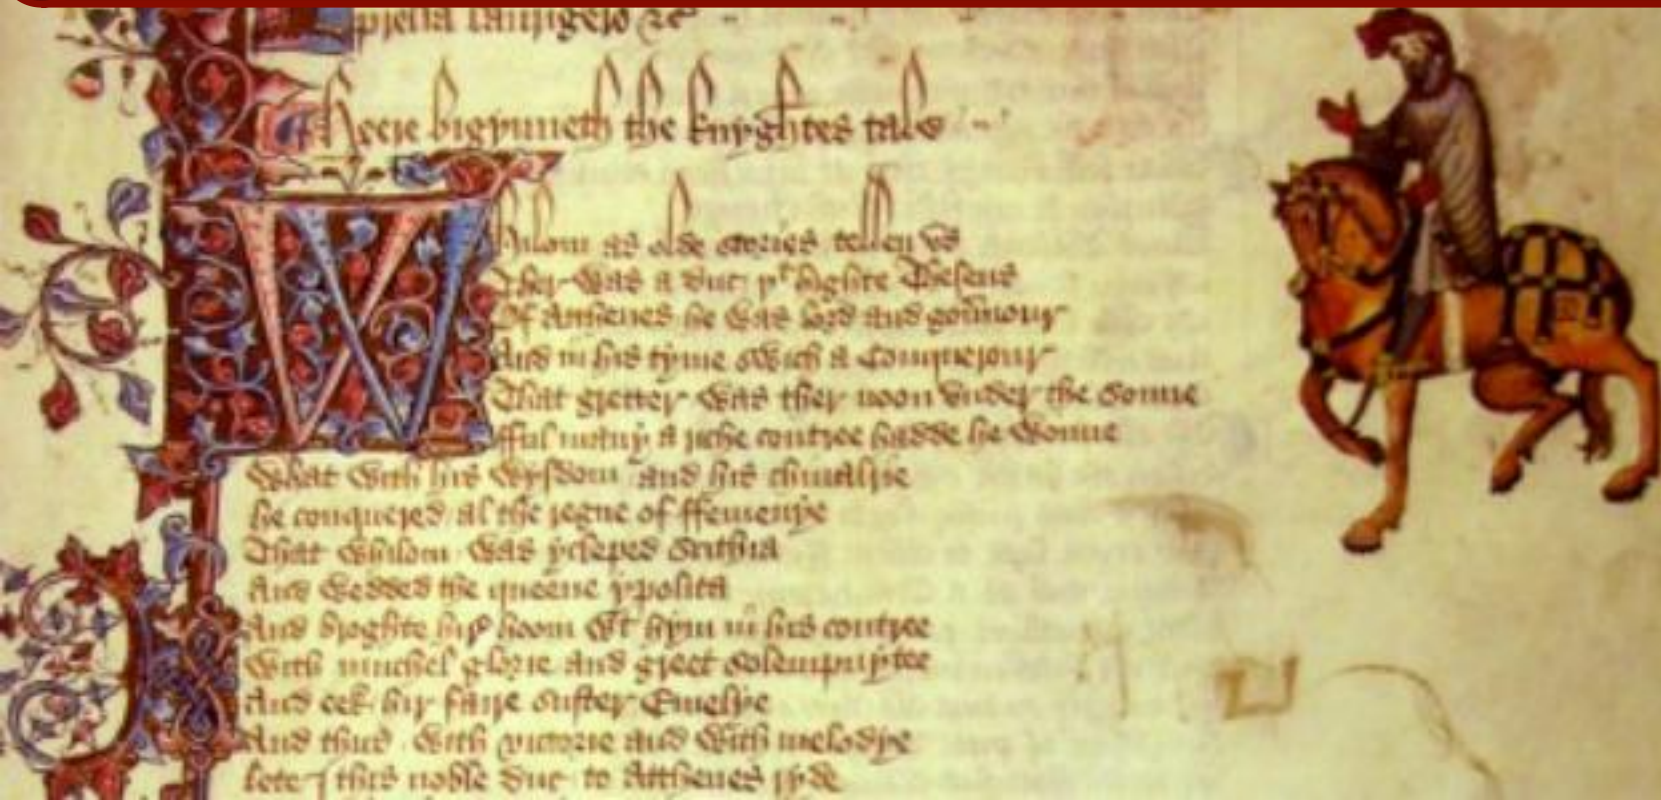 lamigero &c
Heere bigynneth the knyghtes tale
Whilom as olde stories tellen vs
Ther was a duc þt highte Theseus
Of Atthenes he was lord and gouernour
And in his tyme swich a Conquerour
That gretter was ther noon vnder the sonne
fful many a riche contree hadde he wonne
What with his wysdom and his chiualrye
he conquered al the regne of ffemenye
That whilom was ycleped Scithia
And wedded the queene ypolita
And broghte hir hoom with hym in his contree
With muchel glorie and greet solempnytee
And eek hir faire suster Emelye
And thus with victorie and with melodye
lete I this noble duc to Atthenes ryde